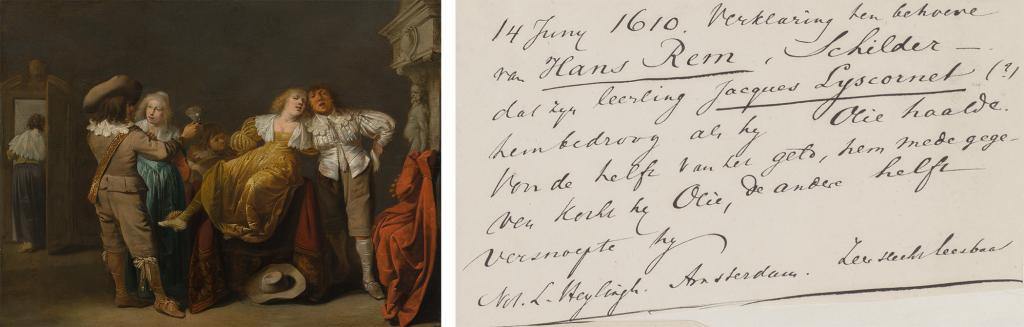 14 Juny 1610. Verklaring ten behoeve
van Hans Rem, Schilder —
dat zijn leerling Jacques Lyscornet (?)
hem bedroog als hy Olie haalde.
Von de helft van het geld, hem mede gege-
ven kocht hy Olie, de andere helft
versnoepte hy
Not. L. Heylingh. Amsterdam. Zeer slecht leesbaar